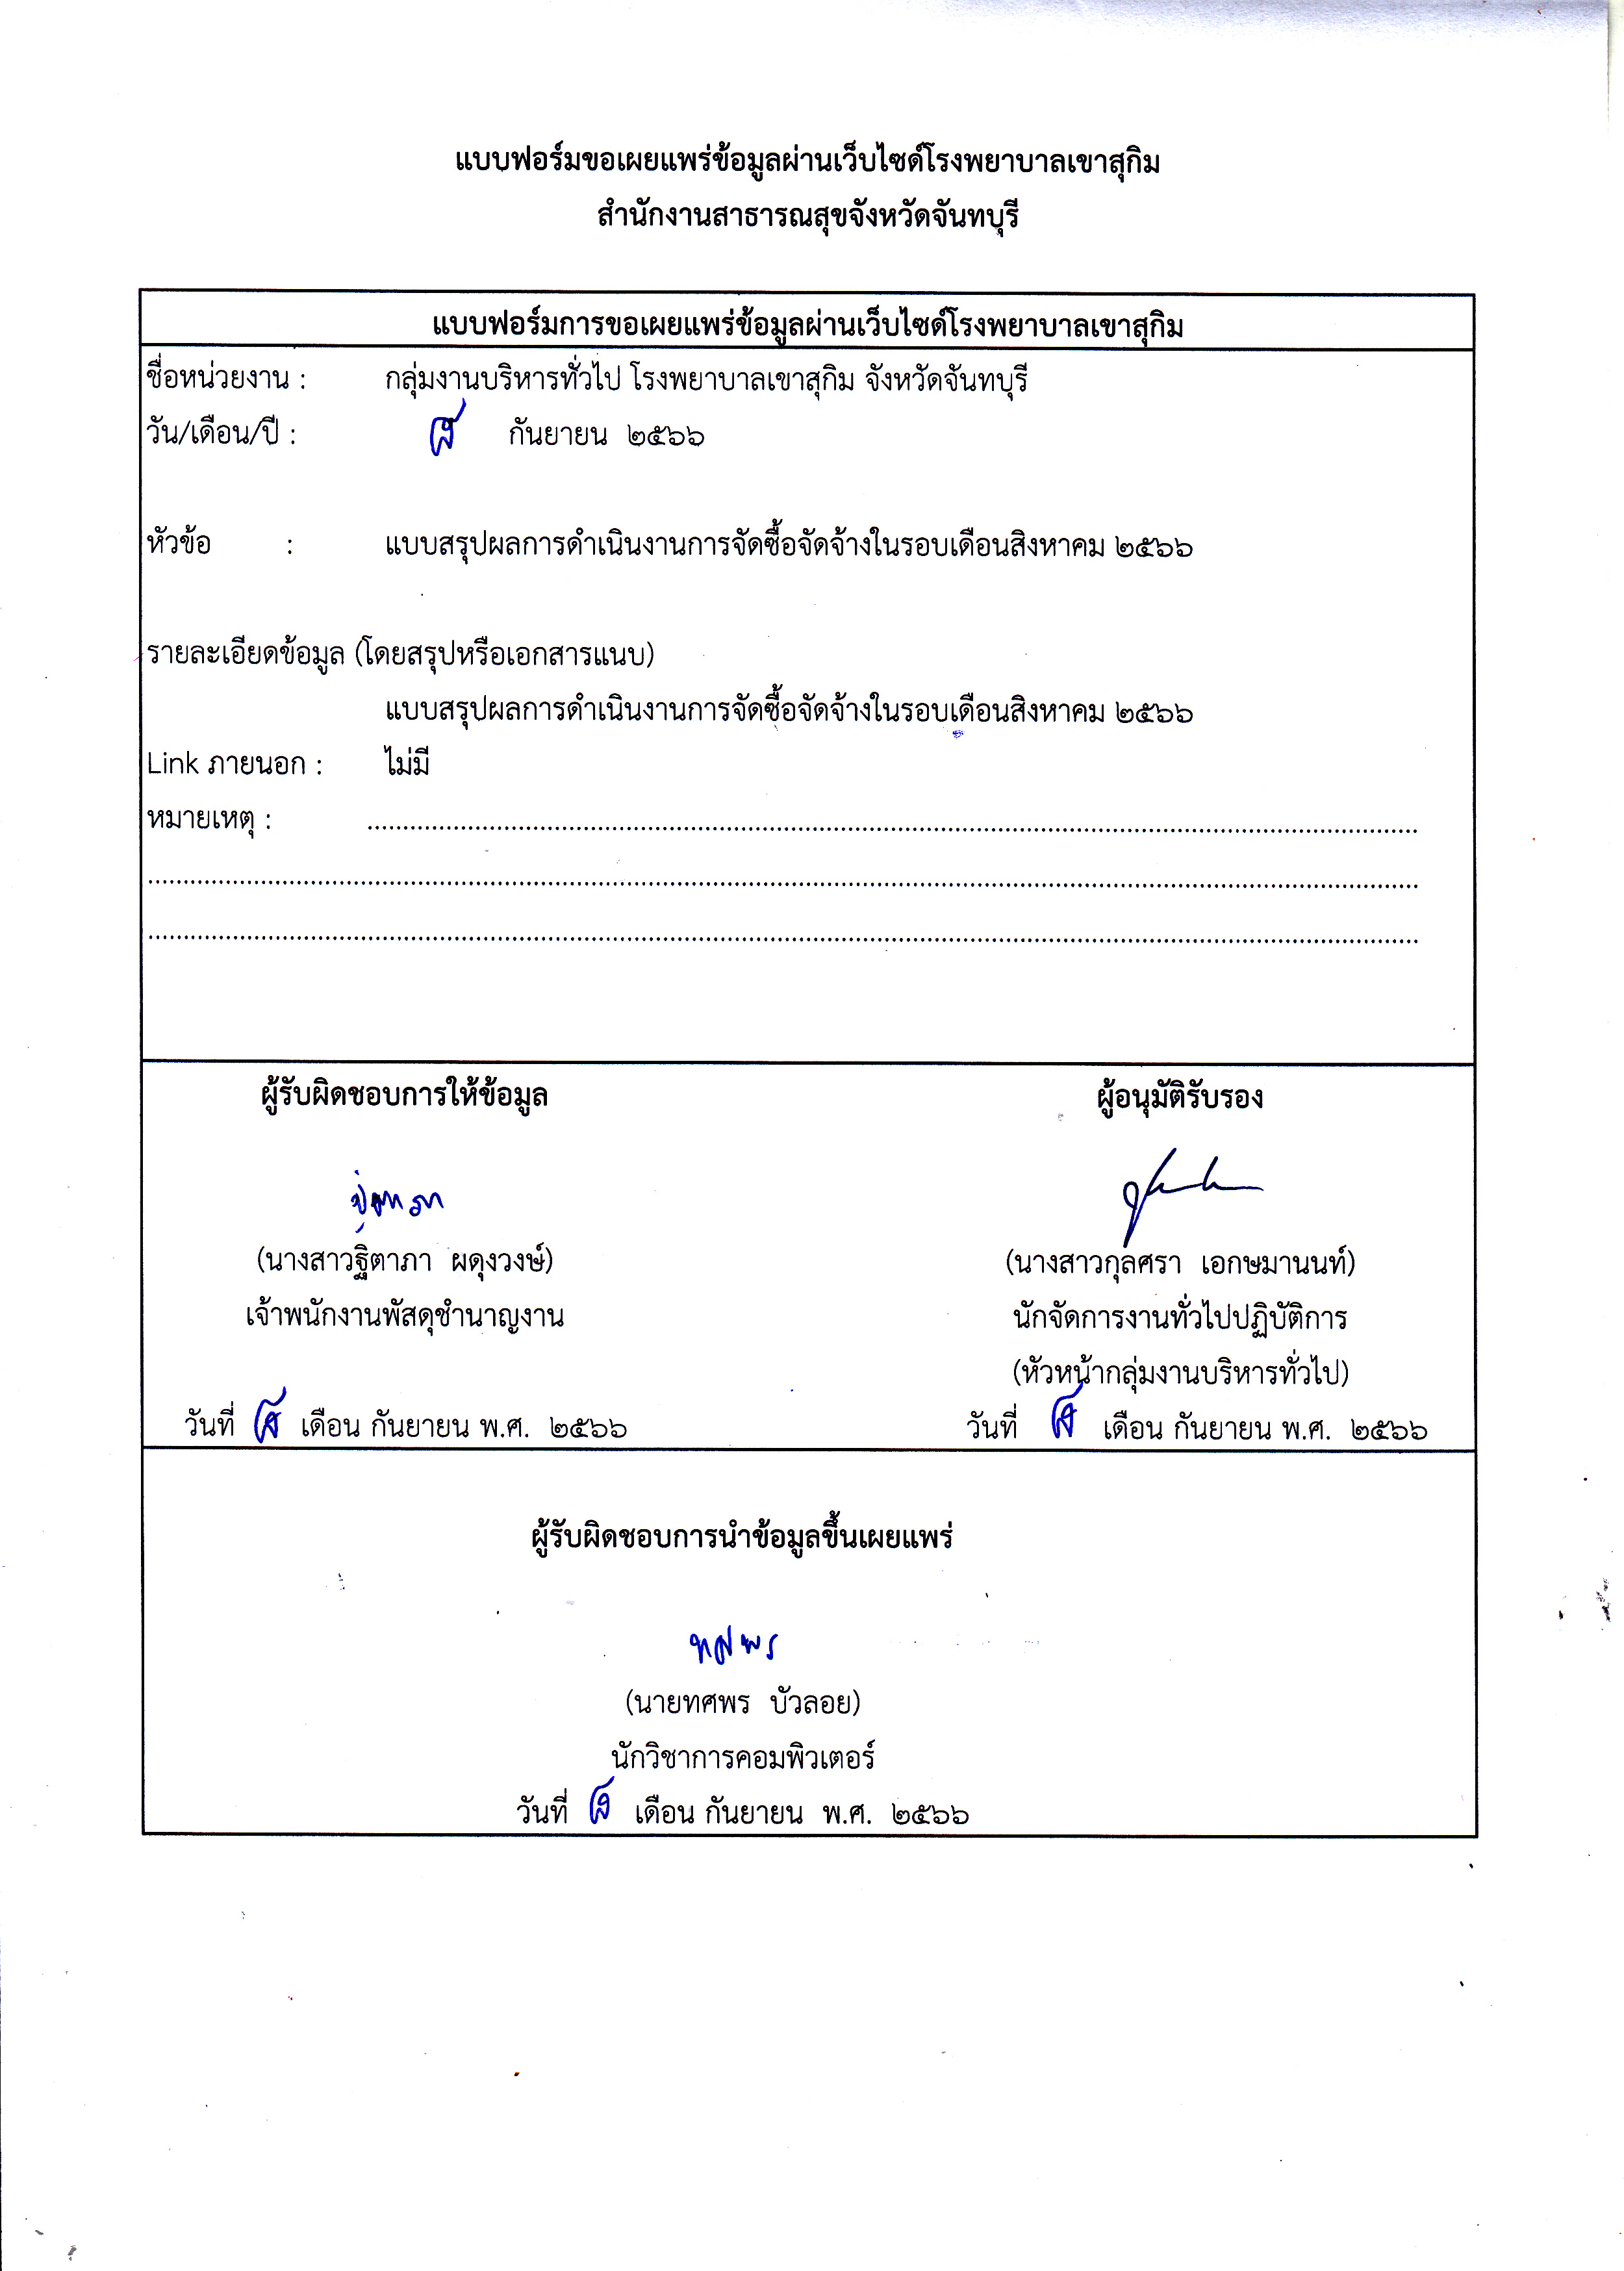 แบบฟอร์มขอเผยแพร่ข้อมูลผ่านเว็บไซด์โรงพยาบาลเขาสุกิม
สำนักงานสาธารณสุขจังหวัดจันทบุรี
แบบฟอร์มการขอเผยแพร่ข้อมูลผ่านเว็บไซด์โรงพยาบาลเขาสุกิม
ชื่อหน่วยงาน : กลุ่มงานบริหารทั่วไป โรงพยาบาลเขาสุกิม จังหวัดจันทบุรี
วัน/เดือน/ปี : กันยายน ๒๕๖๖
หัวข้อ : แบบสรุปผลการดำเนินงานการจัดซื้อจัดจ้างในรอบเดือนสิงหาคม ๒๕๖๖
รายละเอียดข้อมูล (โดยสรุปหรือเอกสารแนบ)
แบบสรุปผลการดำเนินงานการจัดซื้อจัดจ้างในรอบเดือนสิงหาคม ๒๕๖๖
Link ภายนอก : ไม่มี
หมายเหตุ :
ผู้รับผิดชอบการให้ข้อมูล ผู้อนุมัติรับรอง
ฐิตาภา
(นางสาวฐิตาภา ผดุงวงษ์) (นางสาวกุลศรา เอกษมานนท์)
เจ้าพนักงานพัสดุชำนาญงาน นักจัดการงานทั่วไปปฏิบัติการ
(หัวหน้ากลุ่มงานบริหารทั่วไป)
วันที่ เดือน กันยายน พ.ศ. ๒๕๖๖ วันที่ เดือน กันยายน พ.ศ. ๒๕๖๖
ผู้รับผิดชอบการนำข้อมูลขึ้นเผยแพร่
ทศพร
(นายทศพร บัวลอย)
นักวิชาการคอมพิวเตอร์
วันที่ เดือน กันยายน พ.ศ. ๒๕๖๖